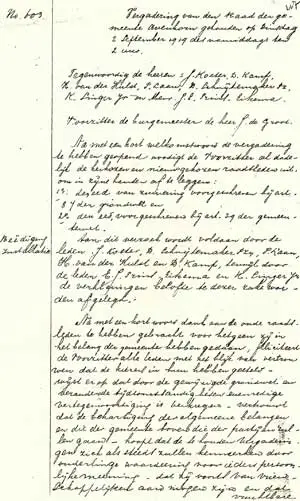 No. 603.
Vergadering van den Raad der ge-
meente Avenhorn gehouden op Dinsdag
2 September 1919 des namiddags ten
2 ure.
Tegenwoordig de heeren: J. Koster, D. Kamp,
H. van der Hulst, P. Laan, D. Schuijtemaker Pz,
K. Singer Jr en Mevr. J. E. Prins
Voorzitter de burgemeester de heer J. de Groot.
Na met een kort welkomstwoord de vergadering
te hebben geopend noodigt de Voorzitter al dade-
lijk de herkozen en nieuwgekozen raadsleden uit
om in zijne handen af te leggen:
1º. den eed van zuivering voorgeschreven bij art.
87 der grondwet en
2º. den eed voorgeschreven bij art. 39 der gemeen-
tewet.
Beëediging
Aan dit verzoek wordt voldaan door de
leden J. Koster, D. Schuijtemaker Pz, P. Laan,
H. van der Hulst en D. Kamp, terwijl door
de leden E. J. Prins en K. Singer Jr
de verklaringen belofte te dezer zake wor-
den afgelegd.
Na met een kort woord dank aan de oude raads-
leden te hebben gebracht voor hetgeen zij in
het belang der gemeente hebben gedaan,
de Voorzitter alle leden met het blijk van vertrou-
wen dat de kiezers in hen hebben gesteld
wijst er op dat door de gewijzigde grondwet en
veranderde tijdsomstandigheden eene
vertegenwoordiging is verkregen - vertrouwt
dat de behartiging der algemeene belangen
en die der gemeente boven die der partijen zul-
len gaan - hoopt dat de te houden vergaderin-
gen zich als steeds zullen kenmerken door
onderlinge waardeering voor ieders persoon-
lijke meening - dat zij vooral van vriend-
schappelijken aard mogen zijn en dat